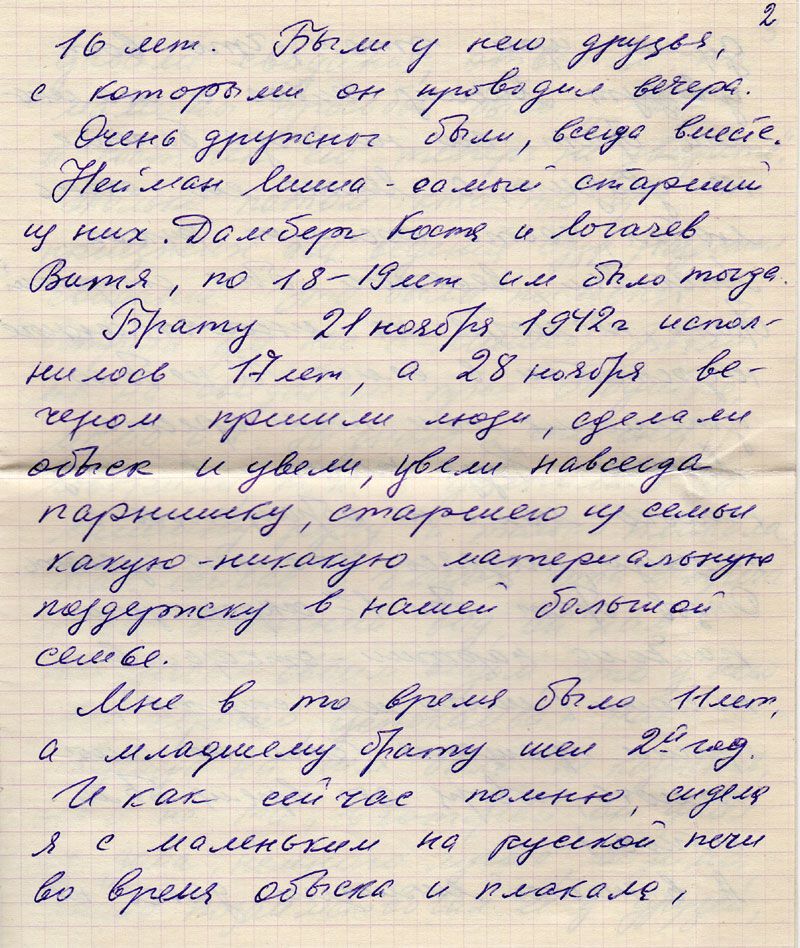 2
16 лет. Были у него друзья,
с которыми он проводил вечера.
Очень дружны были, всегда вместе.
Нейман Миша - самый старший
из них. Дамберг Костя и Логачев
Витя, по 18-19 лет им было тогда.
Брату 21 ноября 1942 г испол-
нилось 17 лет, а 28 ноября ве-
чером пришли люди, сделали
обыск и увели, увели навсегда
парнишку, старшего из семьи
какую-никакую материальную
поддержку в нашей большой
семье.
Мне в то время было 11 лет,
а младшему брату шел 2й год.
И как сейчас помню, сидела
я с маленьким на русской печи
во время обыска и плакала,